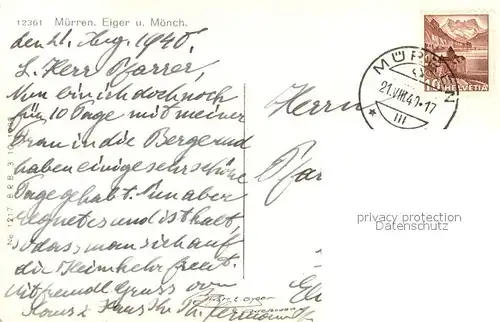 12361 Mürren. Eiger u. Mönch.
den 21. Aug. 1940.
L. Herr Pfarrer,
Nun bin ich doch noch
für 10 Tage mit meiner
Frau in die Berge und
haben einige sehr schöne
Tage gehabt. Nun aber
regnet es und ist kalt,
sodass man sich auf
die Heimkehr freut.
Mit freundl Gruss von
Herrn
HELVETIA
MÜRREN
21.VIII.40-17
III
privacy protection
watermark